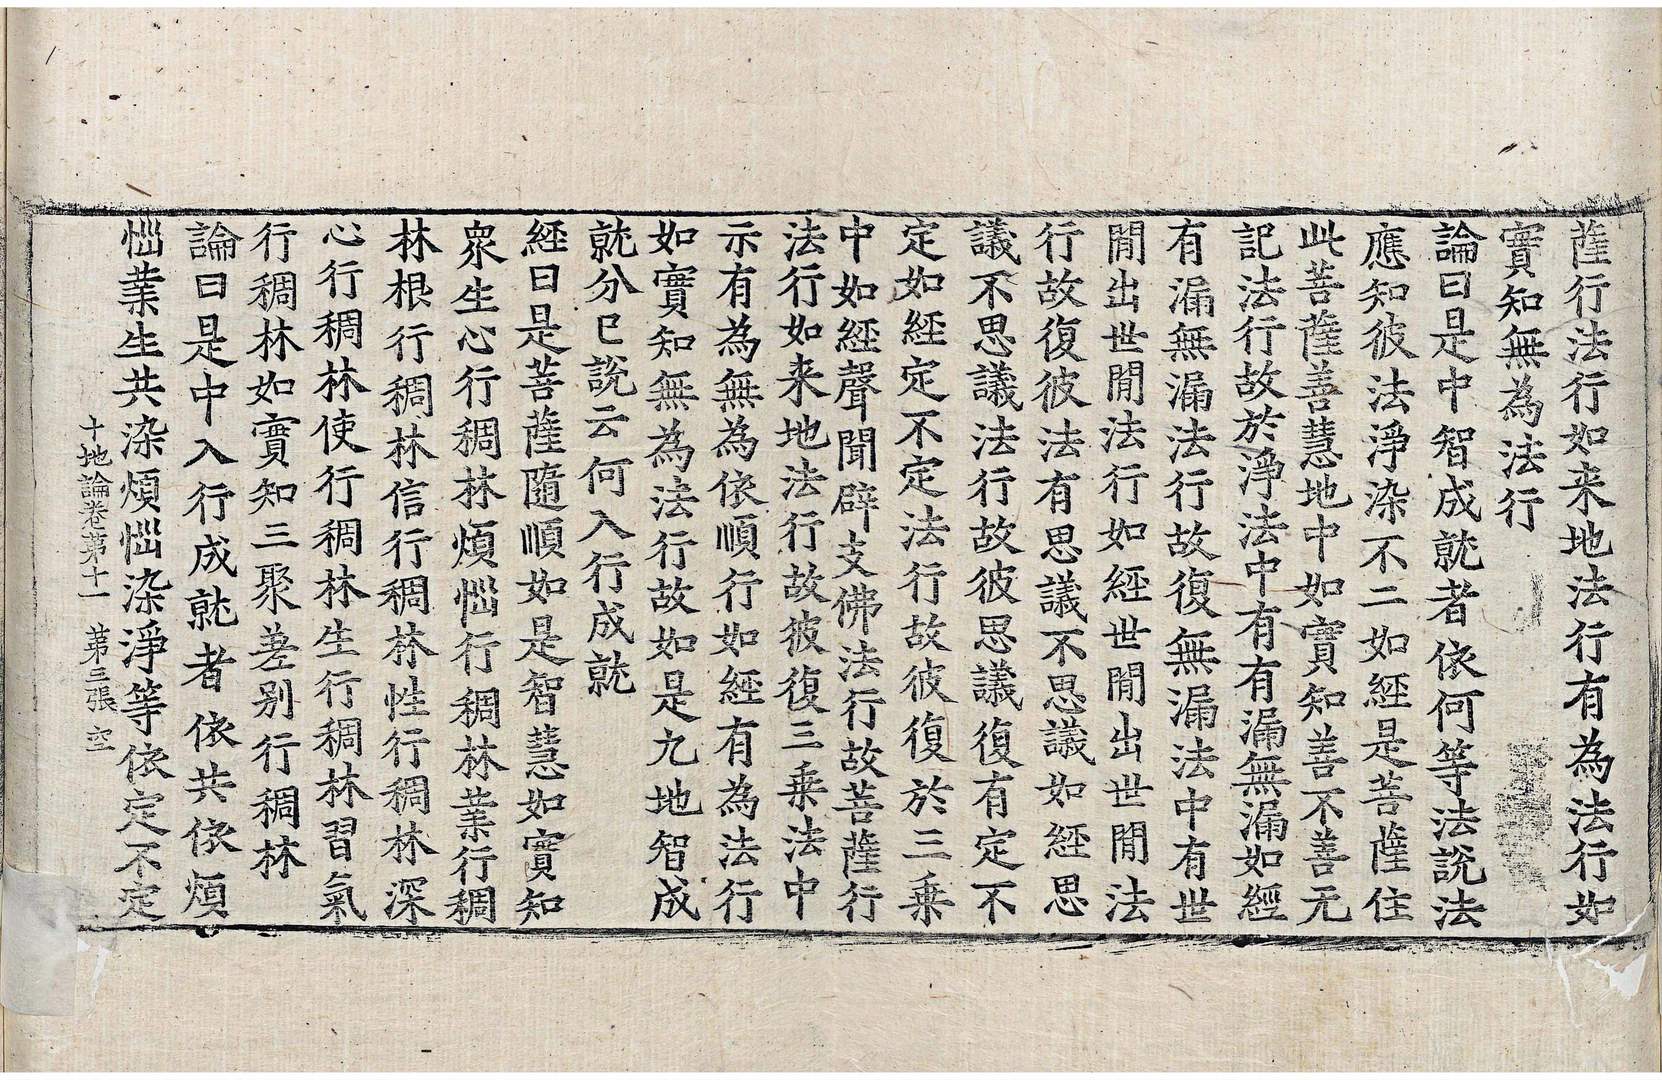 薩行法行如来地法行有為法行如
實知無為法行
論曰是中智成就者依何等法說法
應知彼法淨染不二如經是菩薩住
此菩薩善慧地中如實知善不善无
記法行故於淨法中有有漏無漏如經
有漏無漏法行故復無漏法中有世
閒出世閒法行如經世閒出世閒法
行故復彼法有思議不思議如經思
議不思議法行故彼思議復有定不
定如經定不定法行故彼復於三乗
中如經聲聞辟支佛法行故菩薩行
法行如来地法行故彼復三乗法中
示有為無為依順行如經有為法行
如實知無為法行故如是九地智成
就分已說云何入行成就
經曰是菩薩隨順如是智慧如實知
衆生心行稠林煩惱行稠林業行稠
林根行稠林信行稠林性行稠林深
心行稠林使行稠林生行稠林習氣
行稠林如實知三聚差别行稠林
論曰是中入行成就者依共依煩
惱業生共染煩惱染淨等依定不定
十地論卷第十一 第三張 空